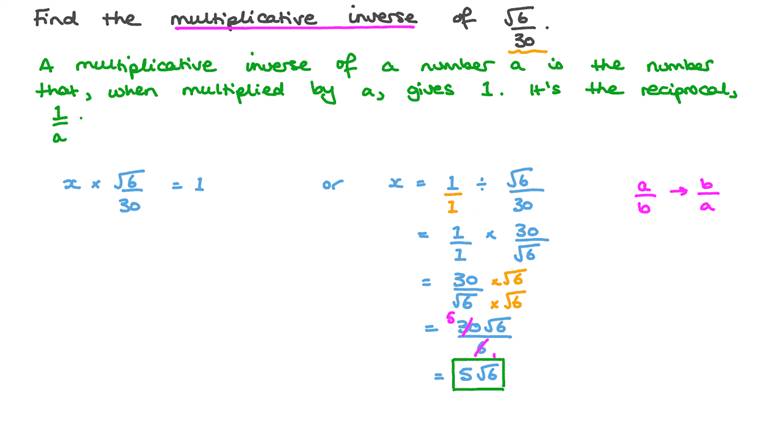 Find the multiplicative inverse of √6/30.
A multiplicative inverse of a number a is the number
that, when multiplied by a, gives 1. It's the reciprocal,
1/a.
x × √6/30 = 1 or x = 1/1 ÷ √6/30 a/b → b/a
= 1/1 × 30/√6
= 30/√6 ×√6/×√6
= 5 30√6/6 1
= 5√6